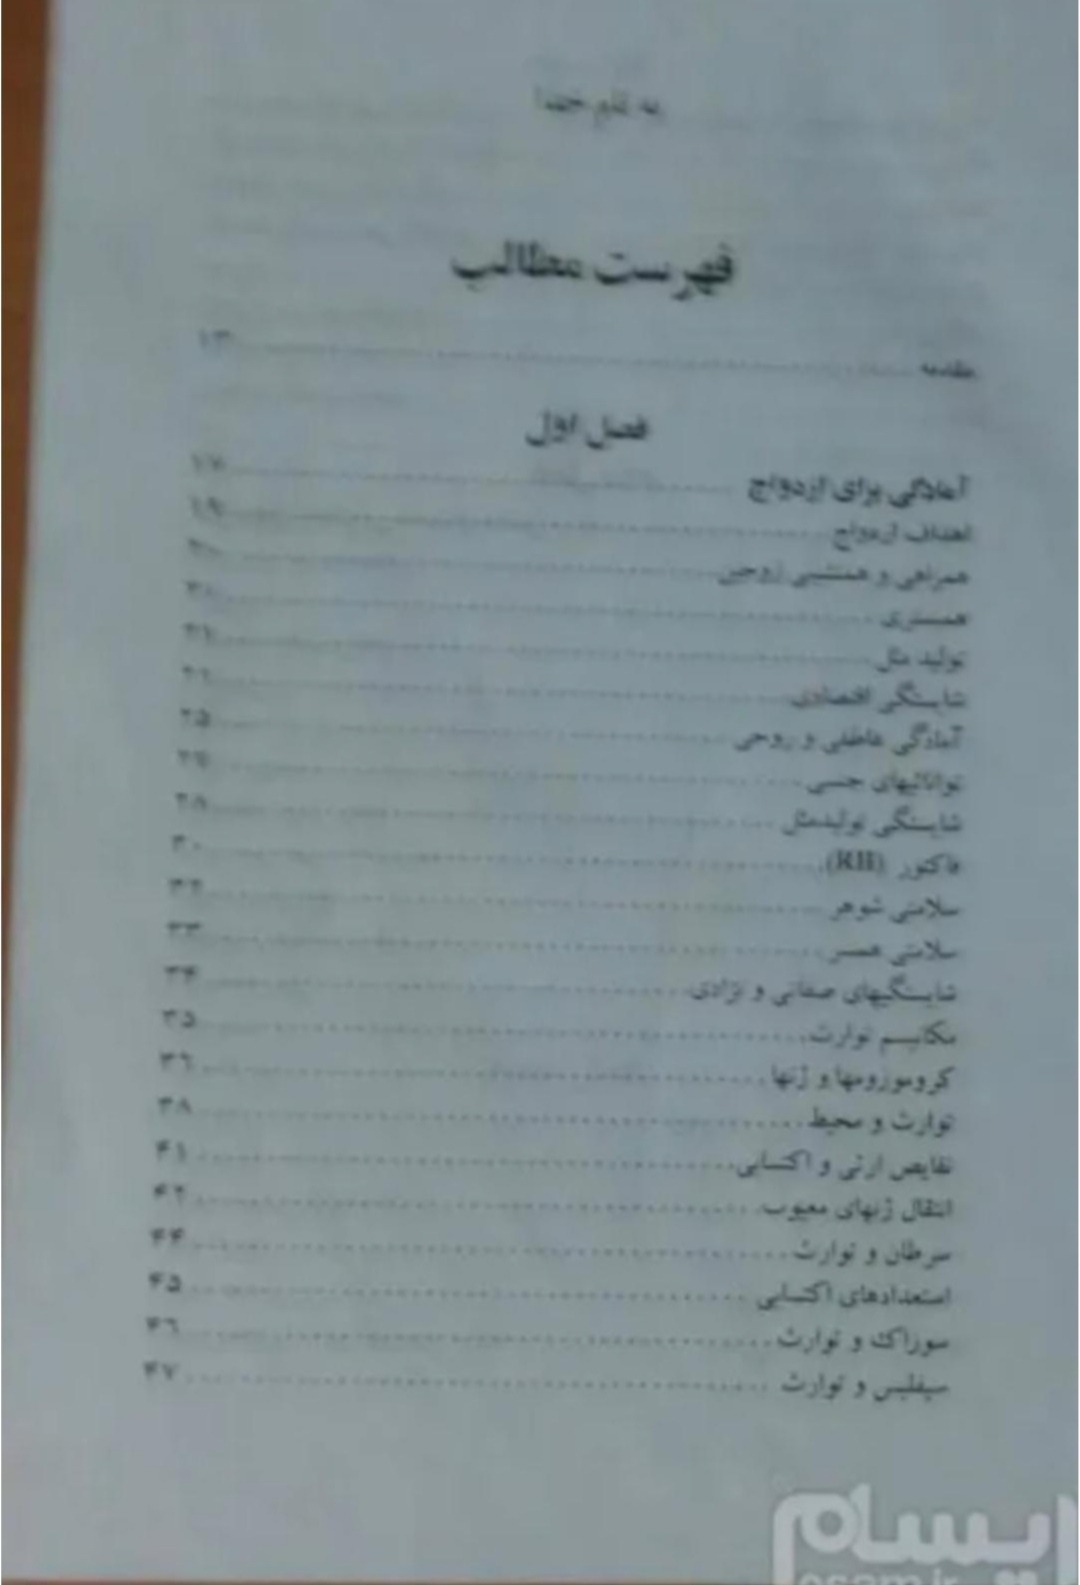 به نام خدا
فهرست مطالب
مقدمه ........ ۱۳
فصل اول
آمادگی برای ازدواج ........ ۱۷
اهداف ازدواج ........ ۱۹
همراهی و همنشینی زوجین ........ ۲۰
همبستری ........
تولید مثل ........
شایستگی اقتصادی ........
آمادگی عاطفی و روحی ........ ۲۵
توانائیهای جنسی ........
شایستگی تولیدمثل ........ ۲۸
فاکتور (RH) ........ ۳۰
سلامتی شوهر ........ ۳۲
سلامتی همسر ........ ۳۳
شایستگیهای صفاتی و نژادی ........ ۳۴
مکانیسم توارث ........ ۳۵
کروموزومها و ژنها ........ ۳۶
توارث و محیط ........ ۳۸
نقایص ارثی و اکتسابی ........ ۴۱
انتقال ژنهای معیوب ........ ۴۲
سرطان و توارث ........ ۴۴
استعدادهای اکتسابی ........ ۴۵
سوزاک و توارث ........ ۴۶
سیفلیس و توارث ........ ۴۷
ایسام
esam.ir